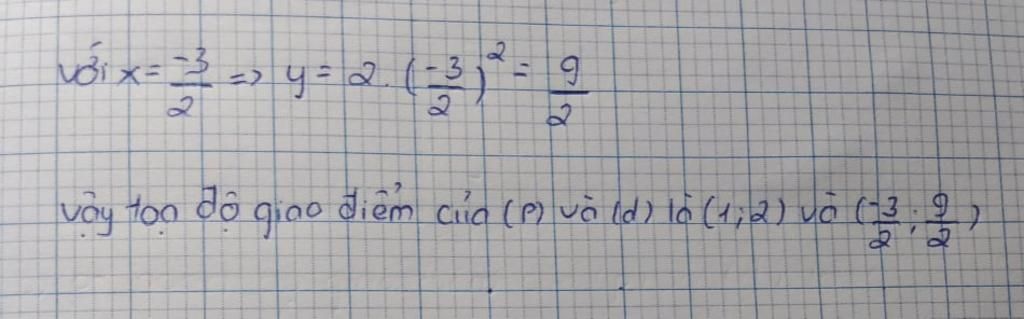 với x = \frac{-3}{2} => y = 2 . (\frac{-3}{2})^2 = \frac{9}{2}
vậy toạ độ giao điểm của (P) và (d) là (1;2) và (\frac{-3}{2}; \frac{9}{2})